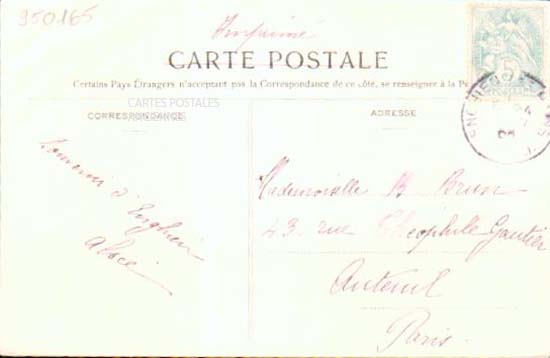 950165
Imprimé
CARTE POSTALE
Certains Pays Étrangers n'acceptant pas la Correspondance de ce côté, se renseigner à la P
CARTES POSTALES
CORRESPONDANCE
ADRESSE
Souvenir d'Enghien
Alice
Mademoiselle B Brun
43 rue Théophile Gautier
Auteuil
Paris.